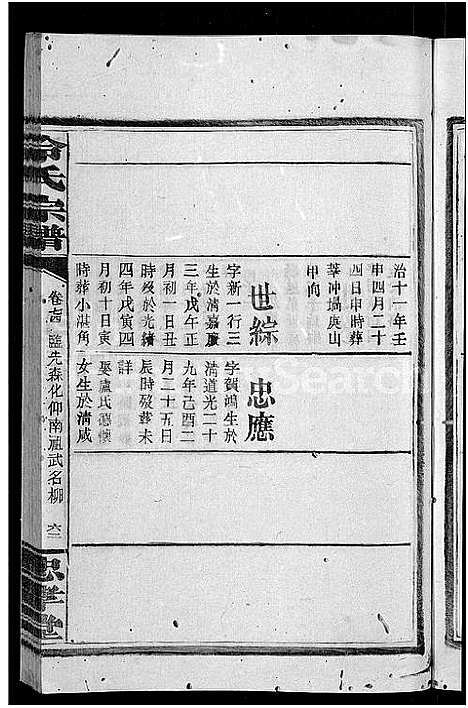 治十一年壬
申四月二十
四日申時葬
華冲塲㘭山
甲向
世綜
字新一行三
生於清嘉慶
三年戊午正
月初一日丑
時歿於光緒
四年戊寅四
月初十日寅
時葬小湛角
忠應
字賀鴻生於
清道光二十
九年己酉二
月二十五日
辰時歿葬未
詳
娶盧氏德懷
女生於清咸
氏宗譜
先森化仰南祖武名柳
忠孝堂